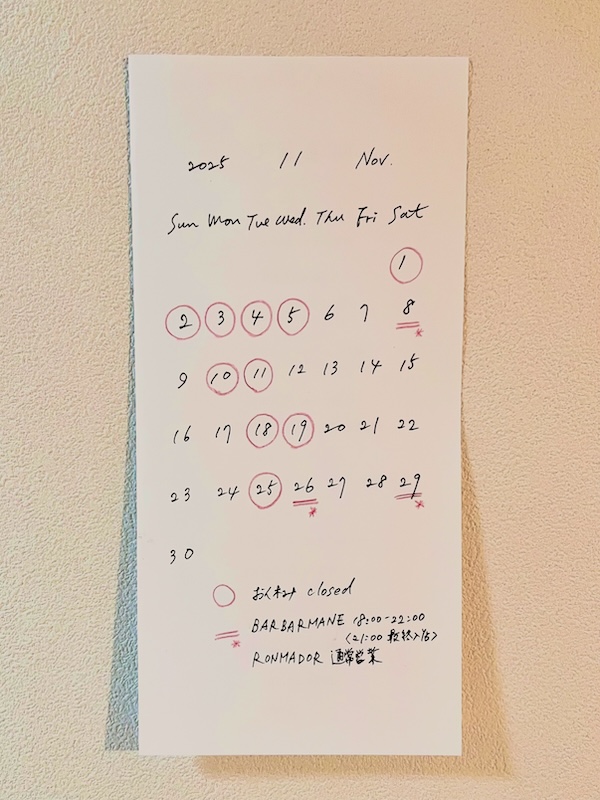 2025 11 Nov.
Sun Mon Tue Wed. Thu Fri Sat
1
2 3 4 5 6 7 8
*
9 10 11 12 13 14 15
16 17 18 19 20 21 22
23 24 25 26 27 28 29
* *
30
お休み closed
BARBARMANE 18:00-22:00
* <21:00 最終入店>
RONMADOR 通常営業